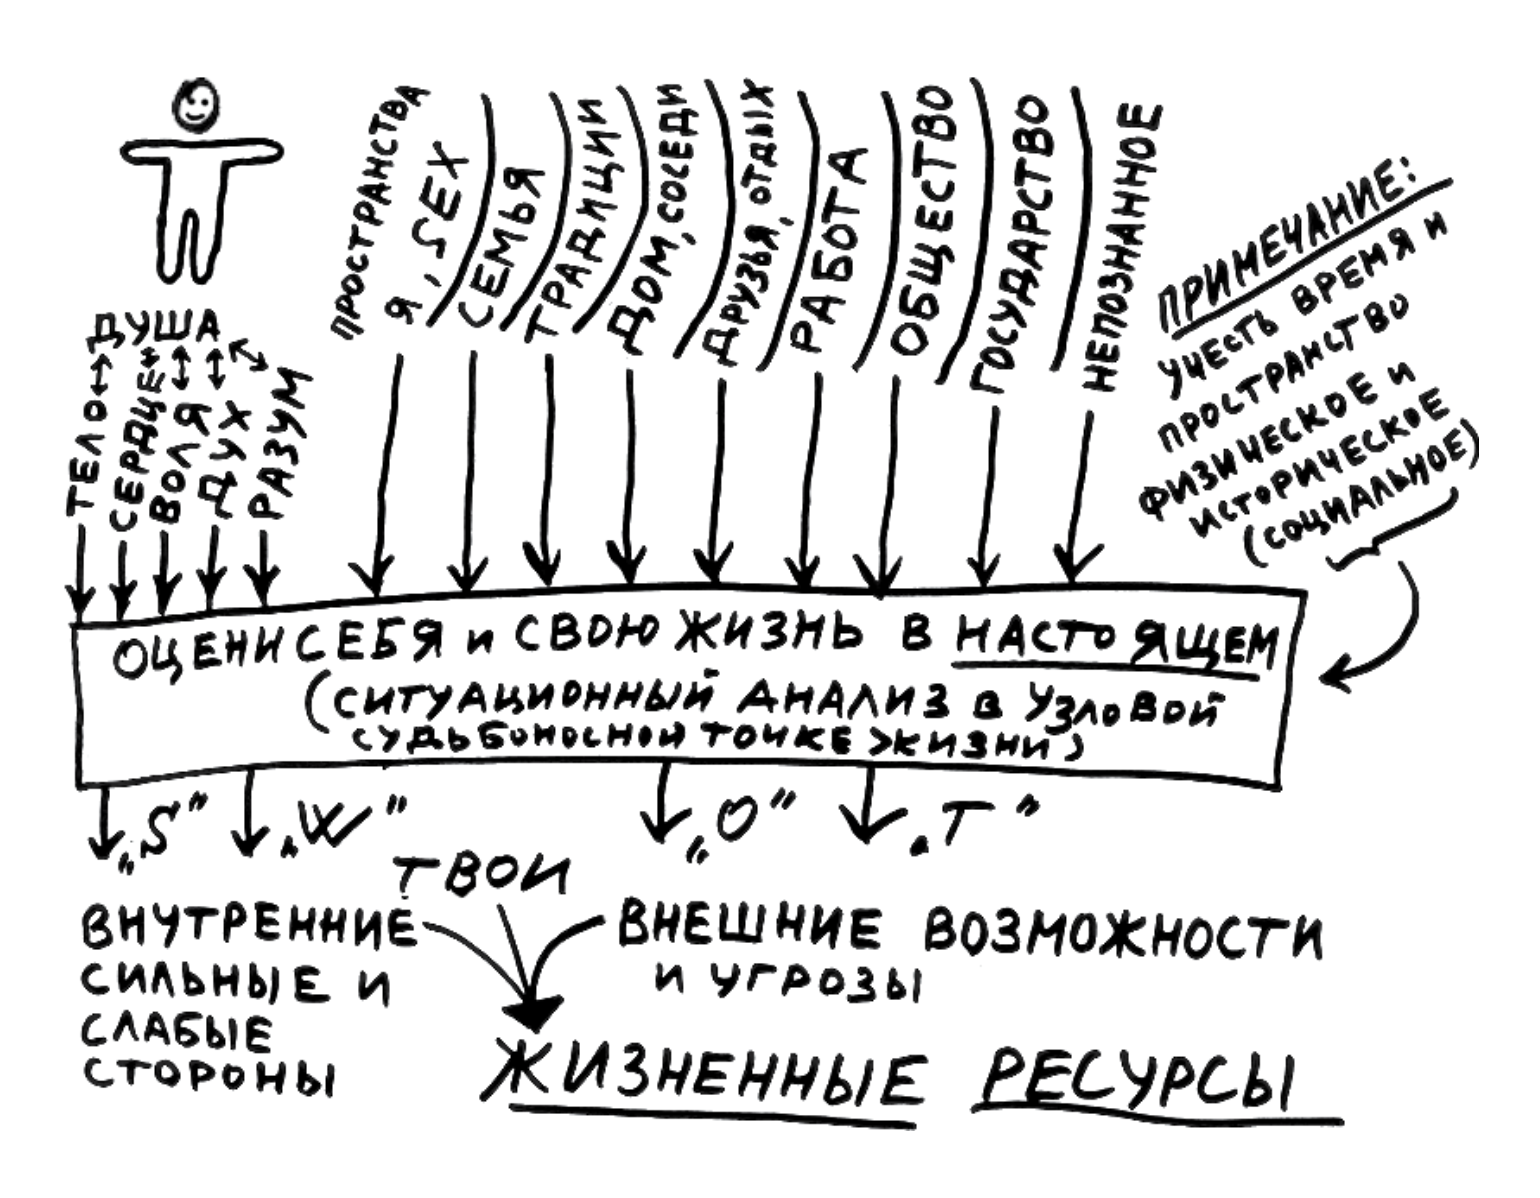 ДУША
ТЕЛО
СЕРДЦЕ
ВОЛЯ
ДУХ
РАЗУМ
ПРОСТРАНСТВА
Я, SEX
СЕМЬЯ
ТРАДИЦИИ
ДОМ, СОСЕДИ
ДРУЗЬЯ, ОТДЫХ
РАБОТА
ОБЩЕСТВО
ГОСУДАРСТВО
НЕПОЗНАННОЕ
ПРИМЕЧАНИЕ:
УЧЕСТЬ ВРЕМЯ И
ПРОСТРАНСТВО
ФИЗИЧЕСКОЕ И
ИСТОРИЧЕСКОЕ
(СОЦИАЛЬНОЕ)
ОЦЕНИ СЕБЯ И СВОЮ ЖИЗНЬ В НАСТОЯЩЕМ
(СИТУАЦИОННЫЙ АНАЛИЗ В УЗЛОВОЙ
СУДЬБОНОСНОЙ ТОЧКЕ ЖИЗНИ)
„S” „W” „O” „T”
ТВОИ
ВНУТРЕННИЕ
СИЛЬНЫЕ И
СЛАБЫЕ
СТОРОНЫ
ВНЕШНИЕ ВОЗМОЖНОСТИ
И УГРОЗЫ
ЖИЗНЕННЫЕ РЕСУРСЫ